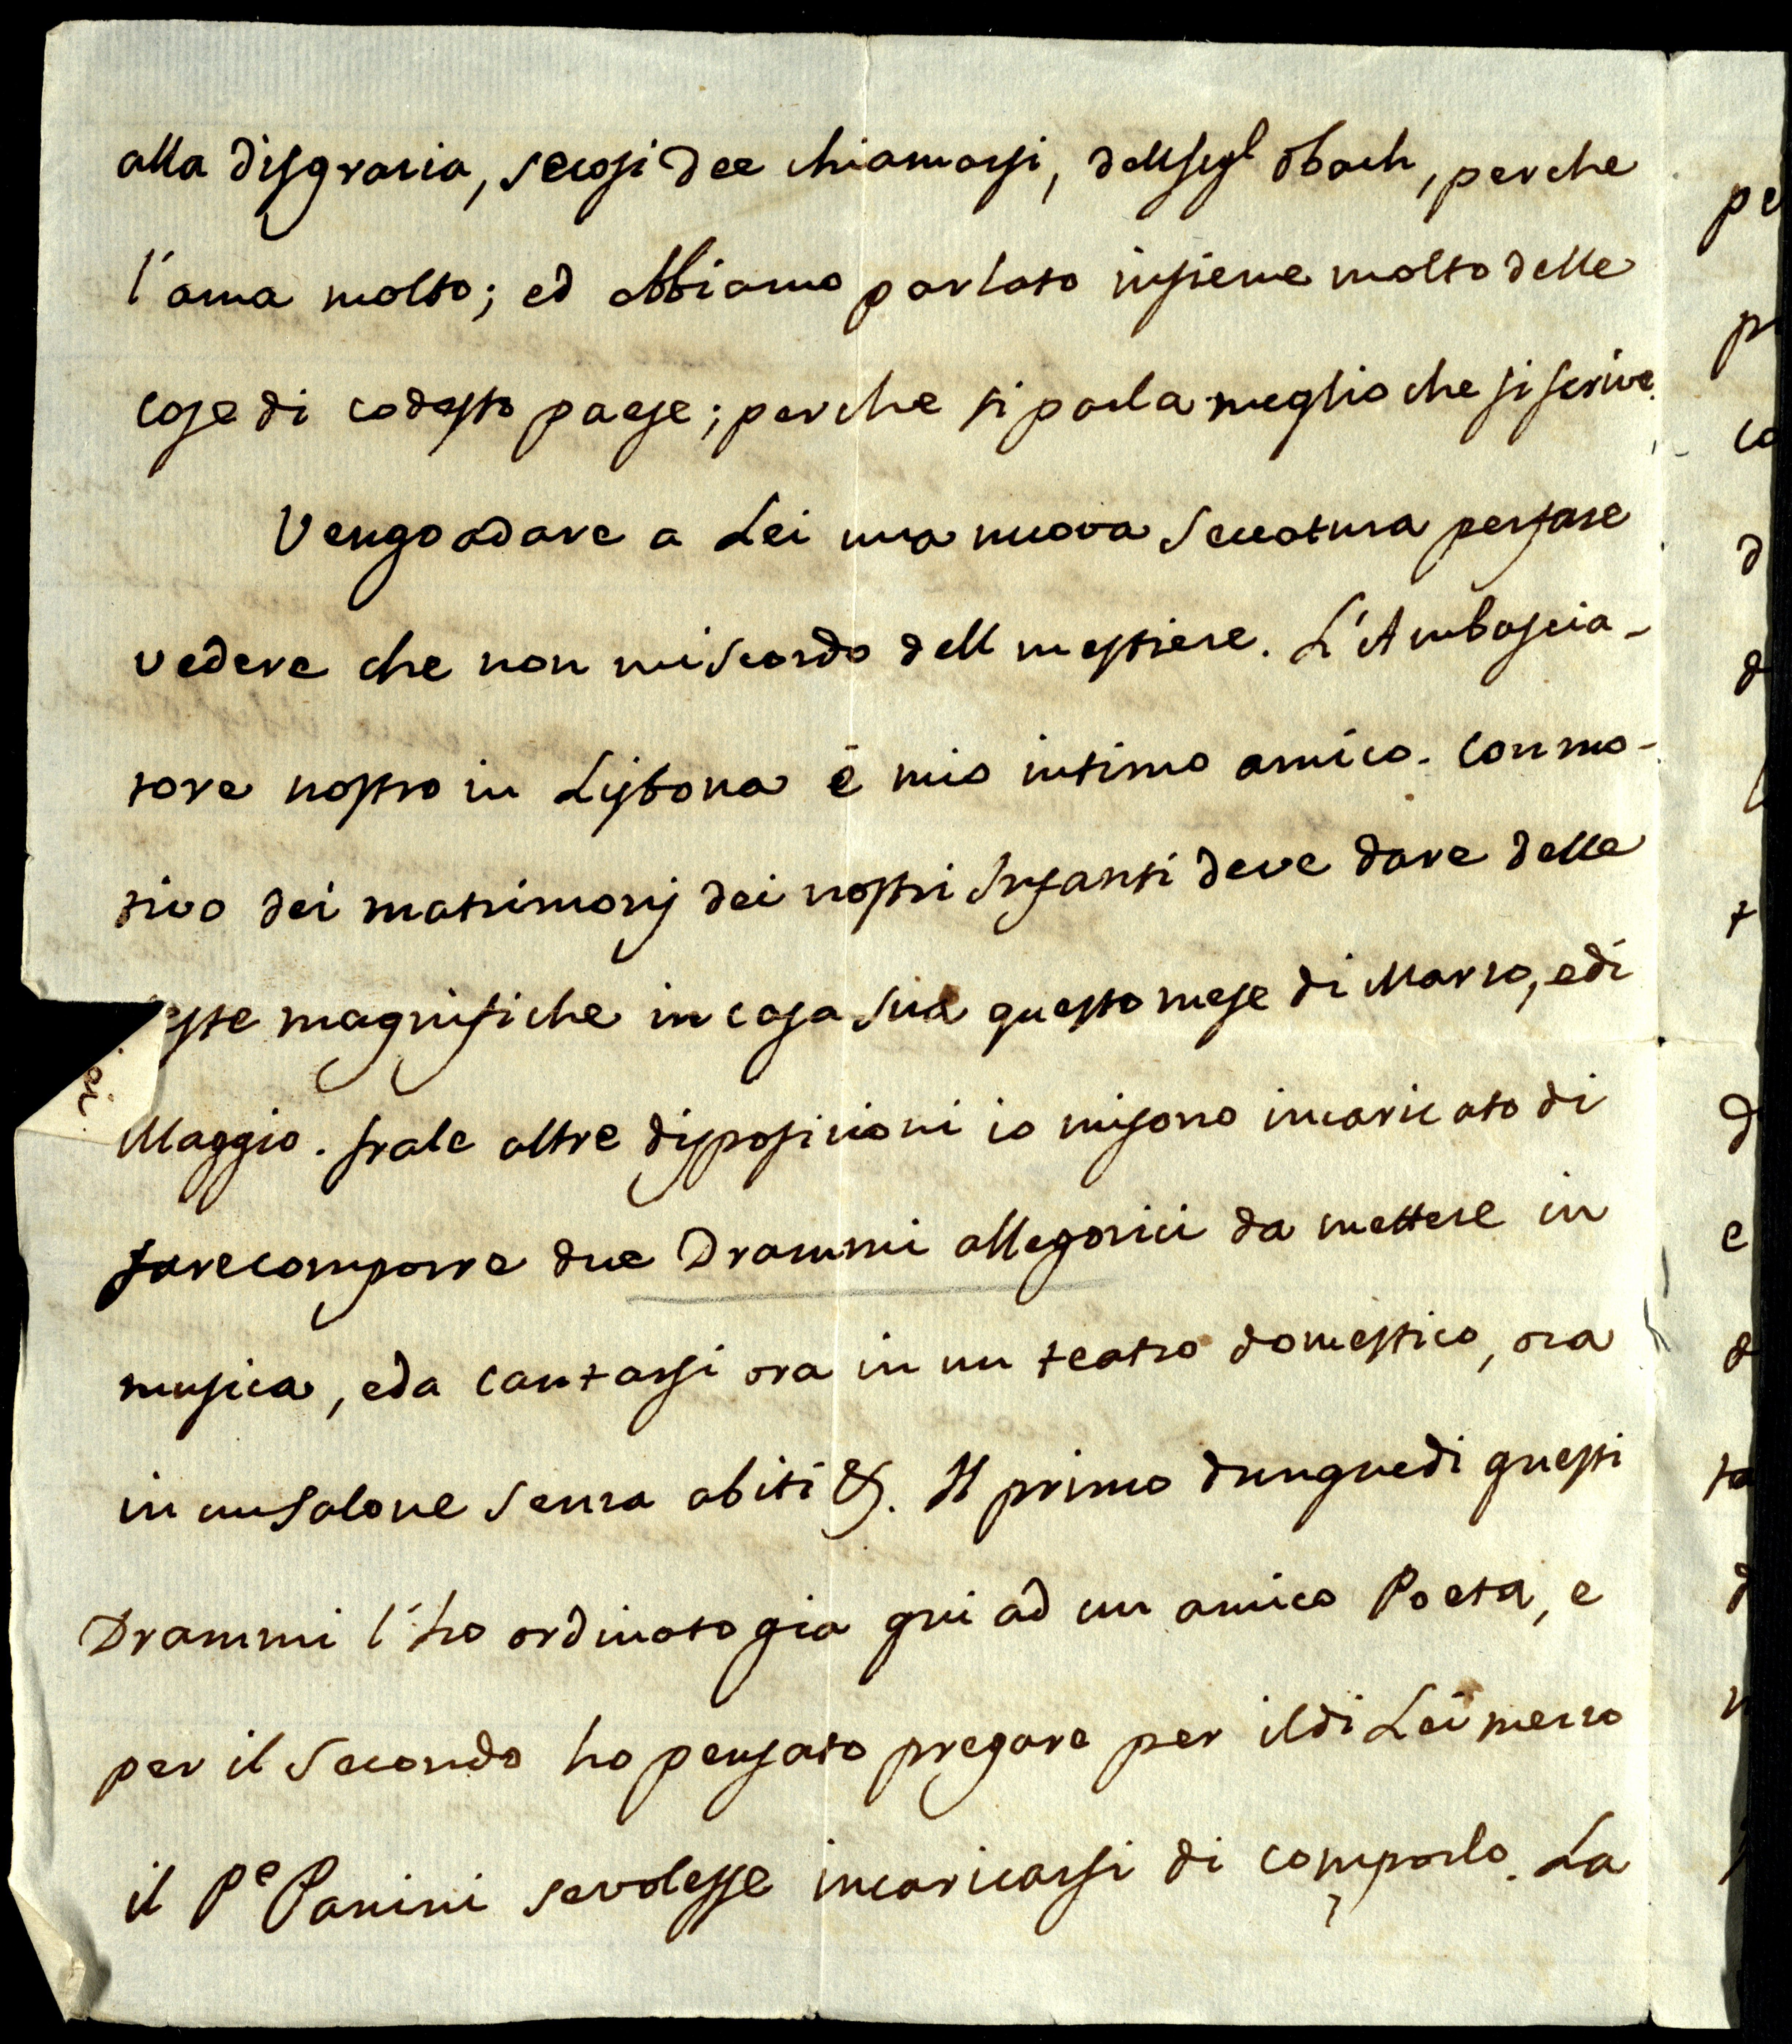 alla disgrazia, se cosi dee chiamarsi, dell Sigl Obach, perche
l'ama molto; ed abbiamo parlato insieme molto delle
cose di codesto paese; perche si parla meglio che si scrive.
Vengo a dare a Lei una nuova Seccatura per fare
vedere che non mi scordo dell mestiere. L'Ambascia-
tore nostro in Lisbona ē mio intimo amico. Con mo-
tivo dei matrimonj dei nostri Infanti deve dare delle
este magnifiche in casa Sua questo mese di Marzo, e di
Maggio. fra le altre disposizioni io mi sono incaricato di
fare comporre due Drammi allegorici da mettere in
musica, e da cantarsi ora in un teatro domestico, ora
in un Salone Senza abiti &. Il primo dunque di questi
Drammi l'ho ordinato gia qui ad un amico Poeta, e
per il Secondo ho pensato pregare per il di Lei mezzo
il Pe Panini se volesse incaricarsi di comporlo. La